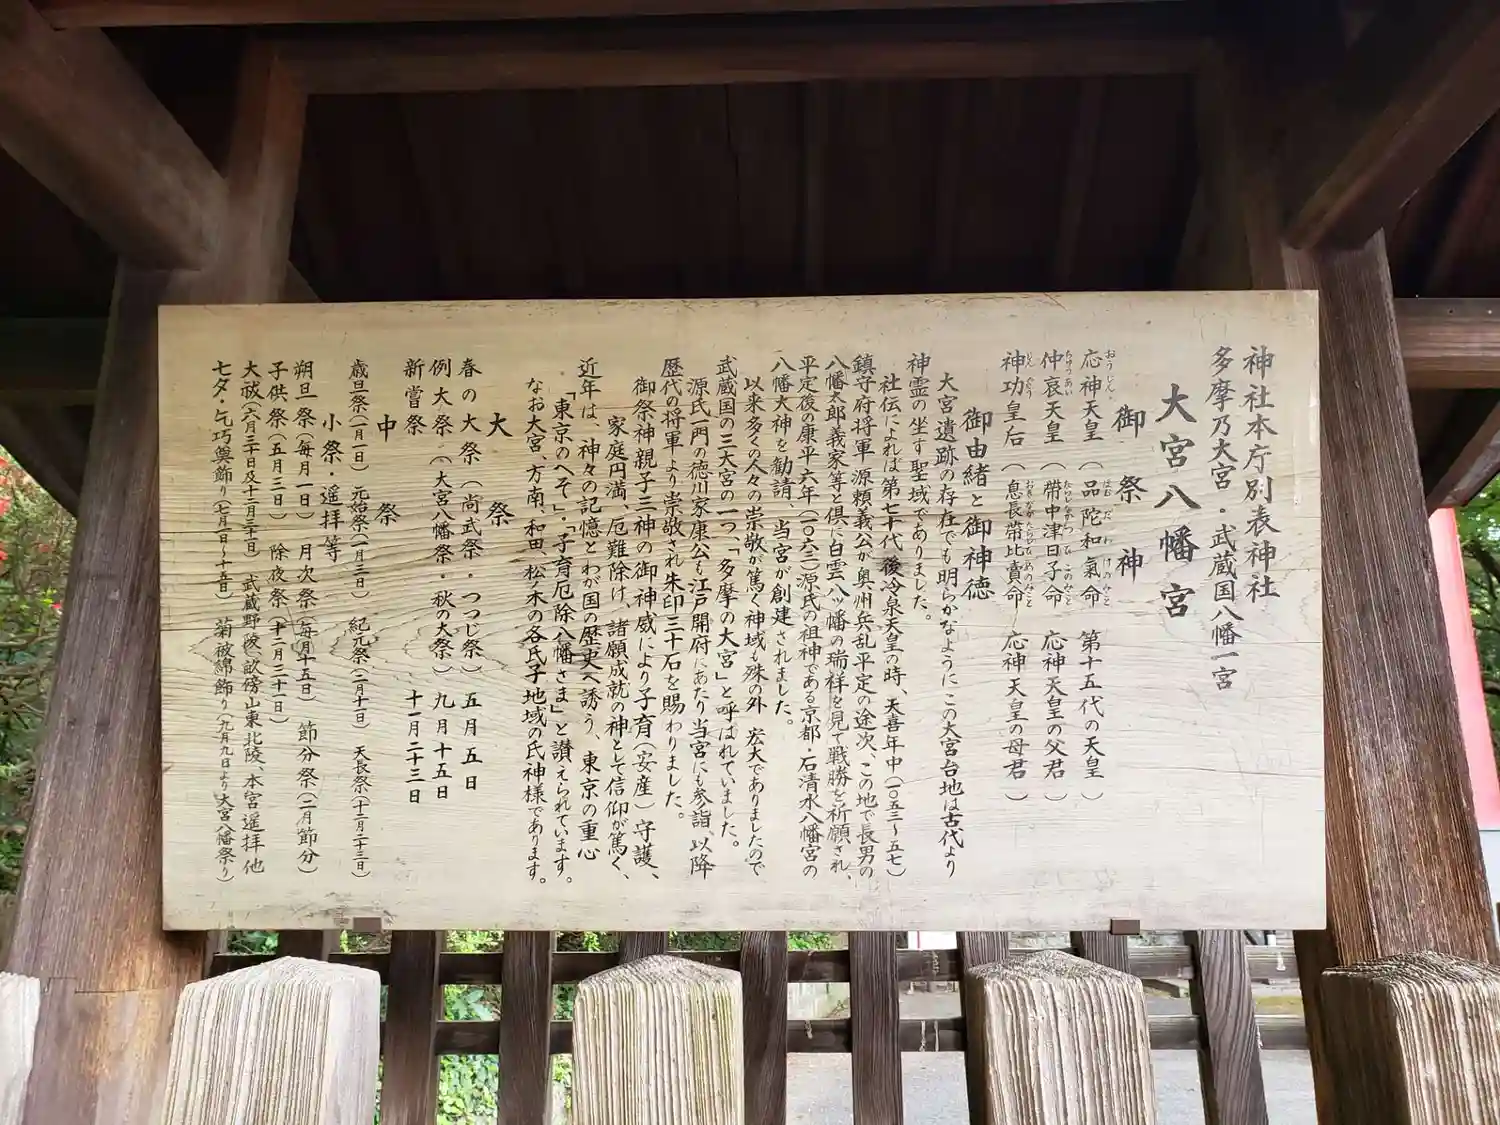 神社本庁別表神社
多摩乃大宮・武蔵国八幡一宮
大宮八幡宮
御祭神
応神天皇（品陀和氣命 第十五代の天皇）
仲哀天皇（帯中津日子命 応神天皇の父君）
神功皇后（息長帯比賣命 応神天皇の母君）
御由緒と御神徳
大宮遺跡の存在でも明らかなようにこの大宮台地は古代より
神霊の坐す聖域でありました。
社伝によれば第七十代 後冷泉天皇の時、天喜年中（一〇五三〜五七）
鎮守府将軍 源頼義公が奥州兵乱平定の途次、この地で長男の
八幡太郎義家等と倶に白雲八ッ幡の瑞祥を見て戦勝を祈願され、
平定後の康平六年（一〇六三）源氏の祖神である京都・石清水八幡宮の
八幡大神を勧請、当宮が創建されました。
以来多くの人々の崇敬が篤く神域も殊の外 宏大でありましたので
武蔵国の三大宮の一つ、「多摩の大宮」と呼ばれていました。
源氏一門の徳川家康公も江戸開府にあたり当宮にも参詣、以降
歴代の将軍より崇敬され朱印三十石を賜わりました。
御祭神親子三神の御神威により子育（安産）守護、
家庭円満、厄難除け、諸願成就の神として信仰が篤く、
近年は、神々の記憶とわが国の歴史へ誘う、東京の重心
「東京のへそ」・「子育厄除八幡さま」と讃えられています。
なお大宮、方南、和田、松木の各氏子地域の氏神様であります。
大祭
春の大祭（尚武祭・つつじ祭）五月五日
例大祭（大宮八幡祭・秋の大祭）九月十五日
新嘗祭 十一月二十三日
中祭
歳旦祭（一月一日） 元始祭（一月三日） 紀元祭（二月十一日） 天長祭（十二月二十三日）
小祭・遥拝等
朔旦祭（毎月一日） 月次祭（毎月十五日） 節分祭（二月節分）
子供祭（五月三日） 除夜祭（十二月三十一日）
大祓（六月三十日及十二月三十一日） 武蔵野陵、畝傍山東北陵、本宮遥拝他
七夕・乞巧奠飾り（七月一日〜十五日） 菊被綿飾り（九月九日より大宮八幡祭り）